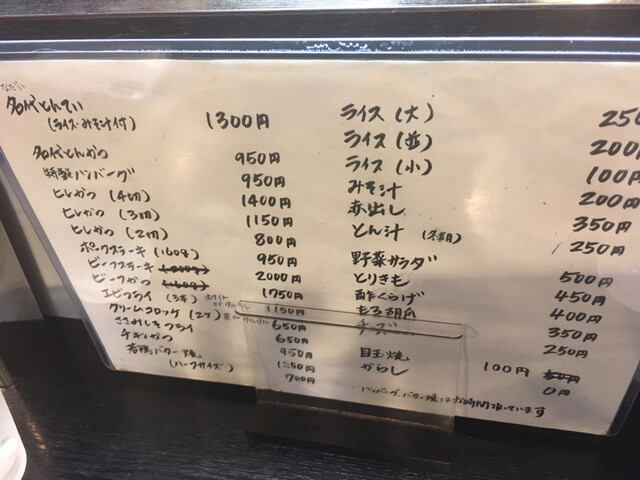 なだい
名代とんてい
(ライス・みそ汁付) 1300円
名代とんかつ 950円
特製ハンバーグ 950円
ヒレかつ (4切) 1400円
ヒレかつ (3切) 1150円
ヒレかつ (2切) 800円
ポークステーキ (160g) 950円
ビーフステーキ 2000円
ビーフかつ 1750円
エビフライ (3本) 1150円
クリームコロッケ (2ケ) 650円
ささみしそフライ 650円
チキンかつ 950円
若鶏バター焼 1250円
(ハーフサイズ) 700円
ライス (大) 250
ライス (並) 200円
ライス (小) 100円
みそ汁 200円
赤出し 350円
とん汁 250円
野菜サラダ 500円
とりきも 450円
酢くらげ 400円
もろ胡瓜 350円
チーズ 250円
目玉焼 100円 50円
からし 0円
ハンバーグ、バター焼はお時間頂いています